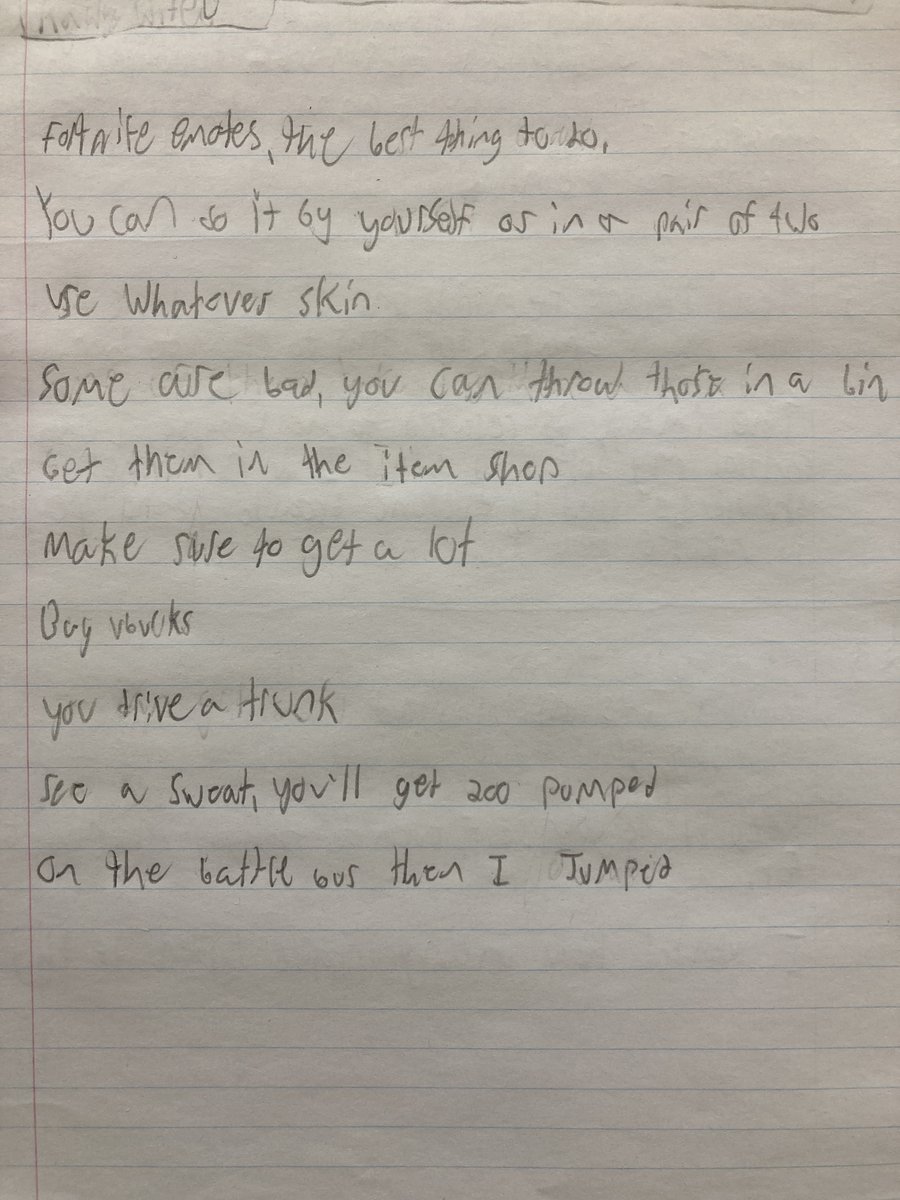 Fortnite emotes, the best thing to do,
You can do it by yourself or in a pair of two
use whatever skin
Some are bad, you can throw those in a bin
Get them in the item shop
Make sure to get a lot
Buy vbucks
you drive a trunk
see a sweat, you'll get 200 pumped
on the battle bus then I Jumped